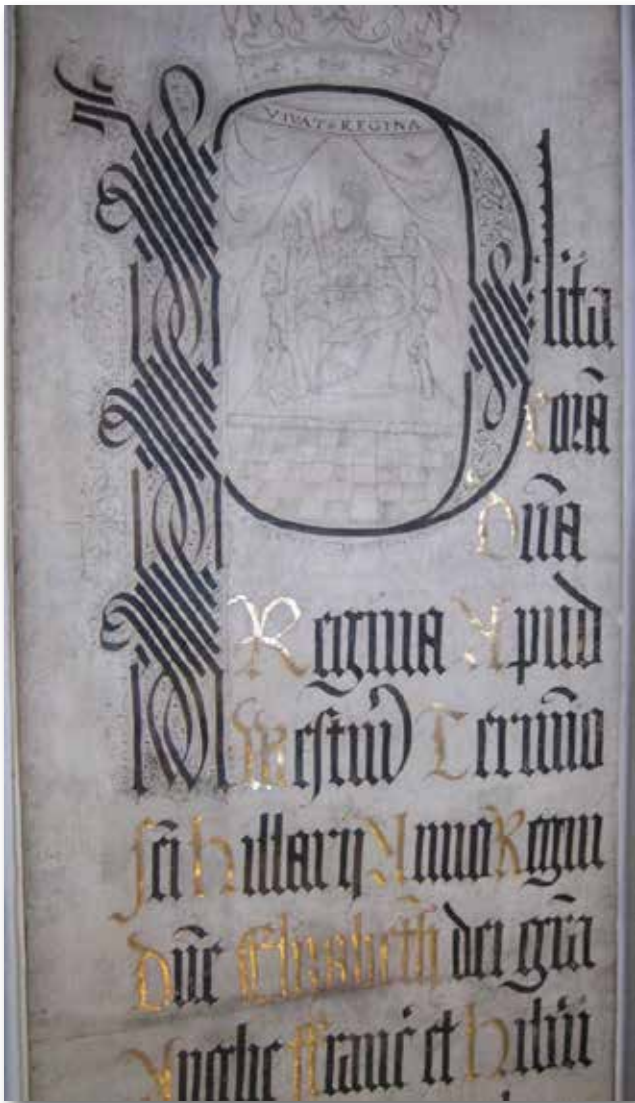 VIVAT REGINA
Plita
Corā
Dn̄a
Regina Apud
Westm̄ Termīo
Sc̄i Hillarij Anno Regni
Dn̄e Elizabeth̄ dei gr̄a
Anglie ffranc̄ et Hib̄n̄